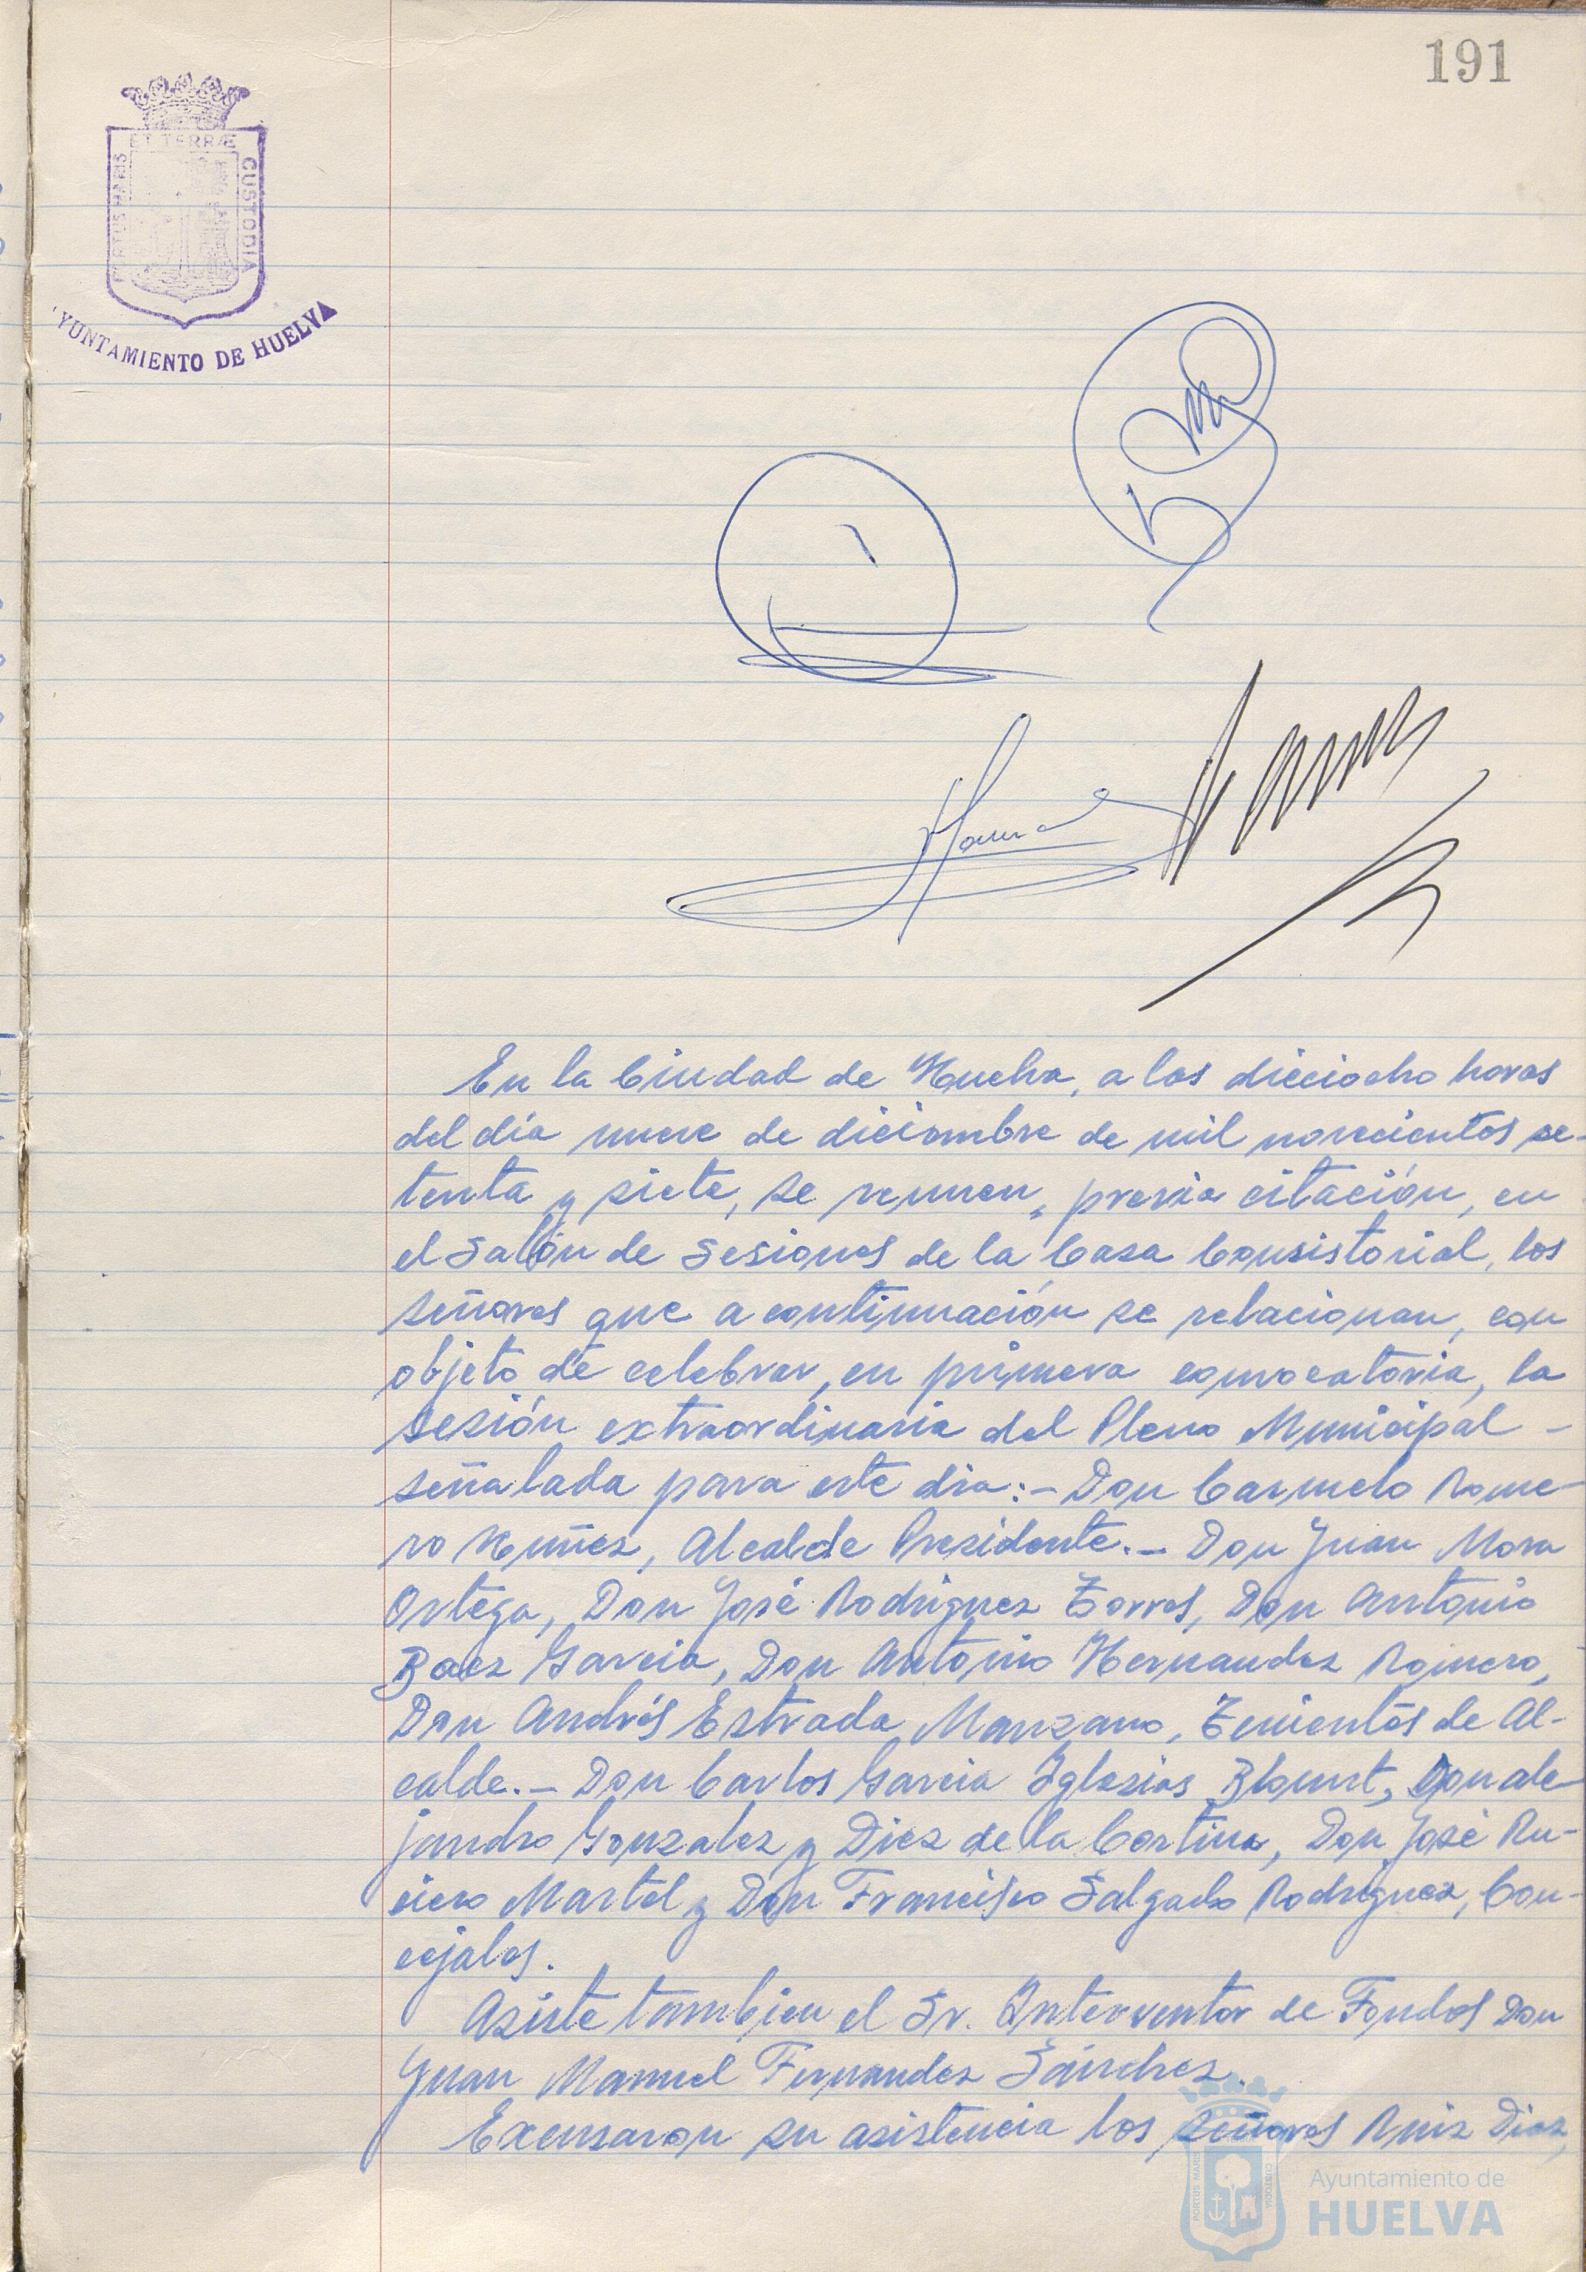 191
ET TERRÆ
PORTUS MARIS
CUSTODIA
YUNTAMIENTO DE HUELVA
En la Ciudad de Huelva, a las dieciocho horas
del día nueve de diciembre de mil novecientos se-
tenta y siete, se reunen, previa citación, en
el Salón de Sesiones de la Casa Consistorial, los
señores que a continuación se relacionan, con
objeto de celebrar, en primera convocatoria, la
sesión extraordinaria del Pleno Municipal -
señalada para este dia:- Don Carmelo Rome-
ro Nuñez, Alcalde Presidente.- Don Juan Mora
Ortega, Don José Rodriguez Torres, Don Antonio
Baez Garcia, Don Antonio Hernandez Romero,
Don Andrés Estrada Manzano, Tenientes de Al-
calde.- Don Carlos Garcia Iglesias Blount, Don Ale-
jandro Gonzalez y Diez de la Cortina, Don José Ru-
ciero Martel y Don Francisco Salgado Rodriguez, Con-
cejales.
Asiste tambien el Sr. Interventor de Fondos Don
Juan Manuel Fernandez Sánchez.
Excusaron su asistencia los señores Ruiz Diaz,
PORTUS MARIS
CUSTODIA
Ayuntamiento de
HUELVA